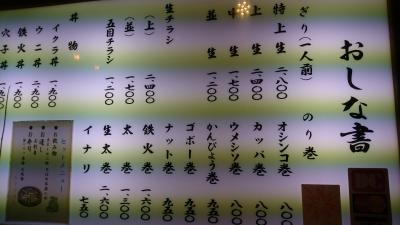 おしな書
ぎり(一人前)
特上生 二.八〇〇
上生 二.四〇〇
中生
並生 一.二〇〇
生チラシ
(上) 二.四〇〇
(並) 一.七〇〇
五目チラシ 一.二〇〇
丼物
イクラ丼 一.九〇〇
ウニ丼
鉄火丼 一.九〇〇
穴子丼 一.九〇〇
のり巻
オシンコ巻 八〇〇
カッパ巻 八〇〇
ウメシソ巻 八〇〇
かんぴょう巻 九五〇
ゴボー巻 九五〇
ナット巻 九五〇
鉄火巻 一.六〇〇
太巻 一.三〇〇
生太巻 二.六〇〇
イナリ 七五〇
セットメニュー